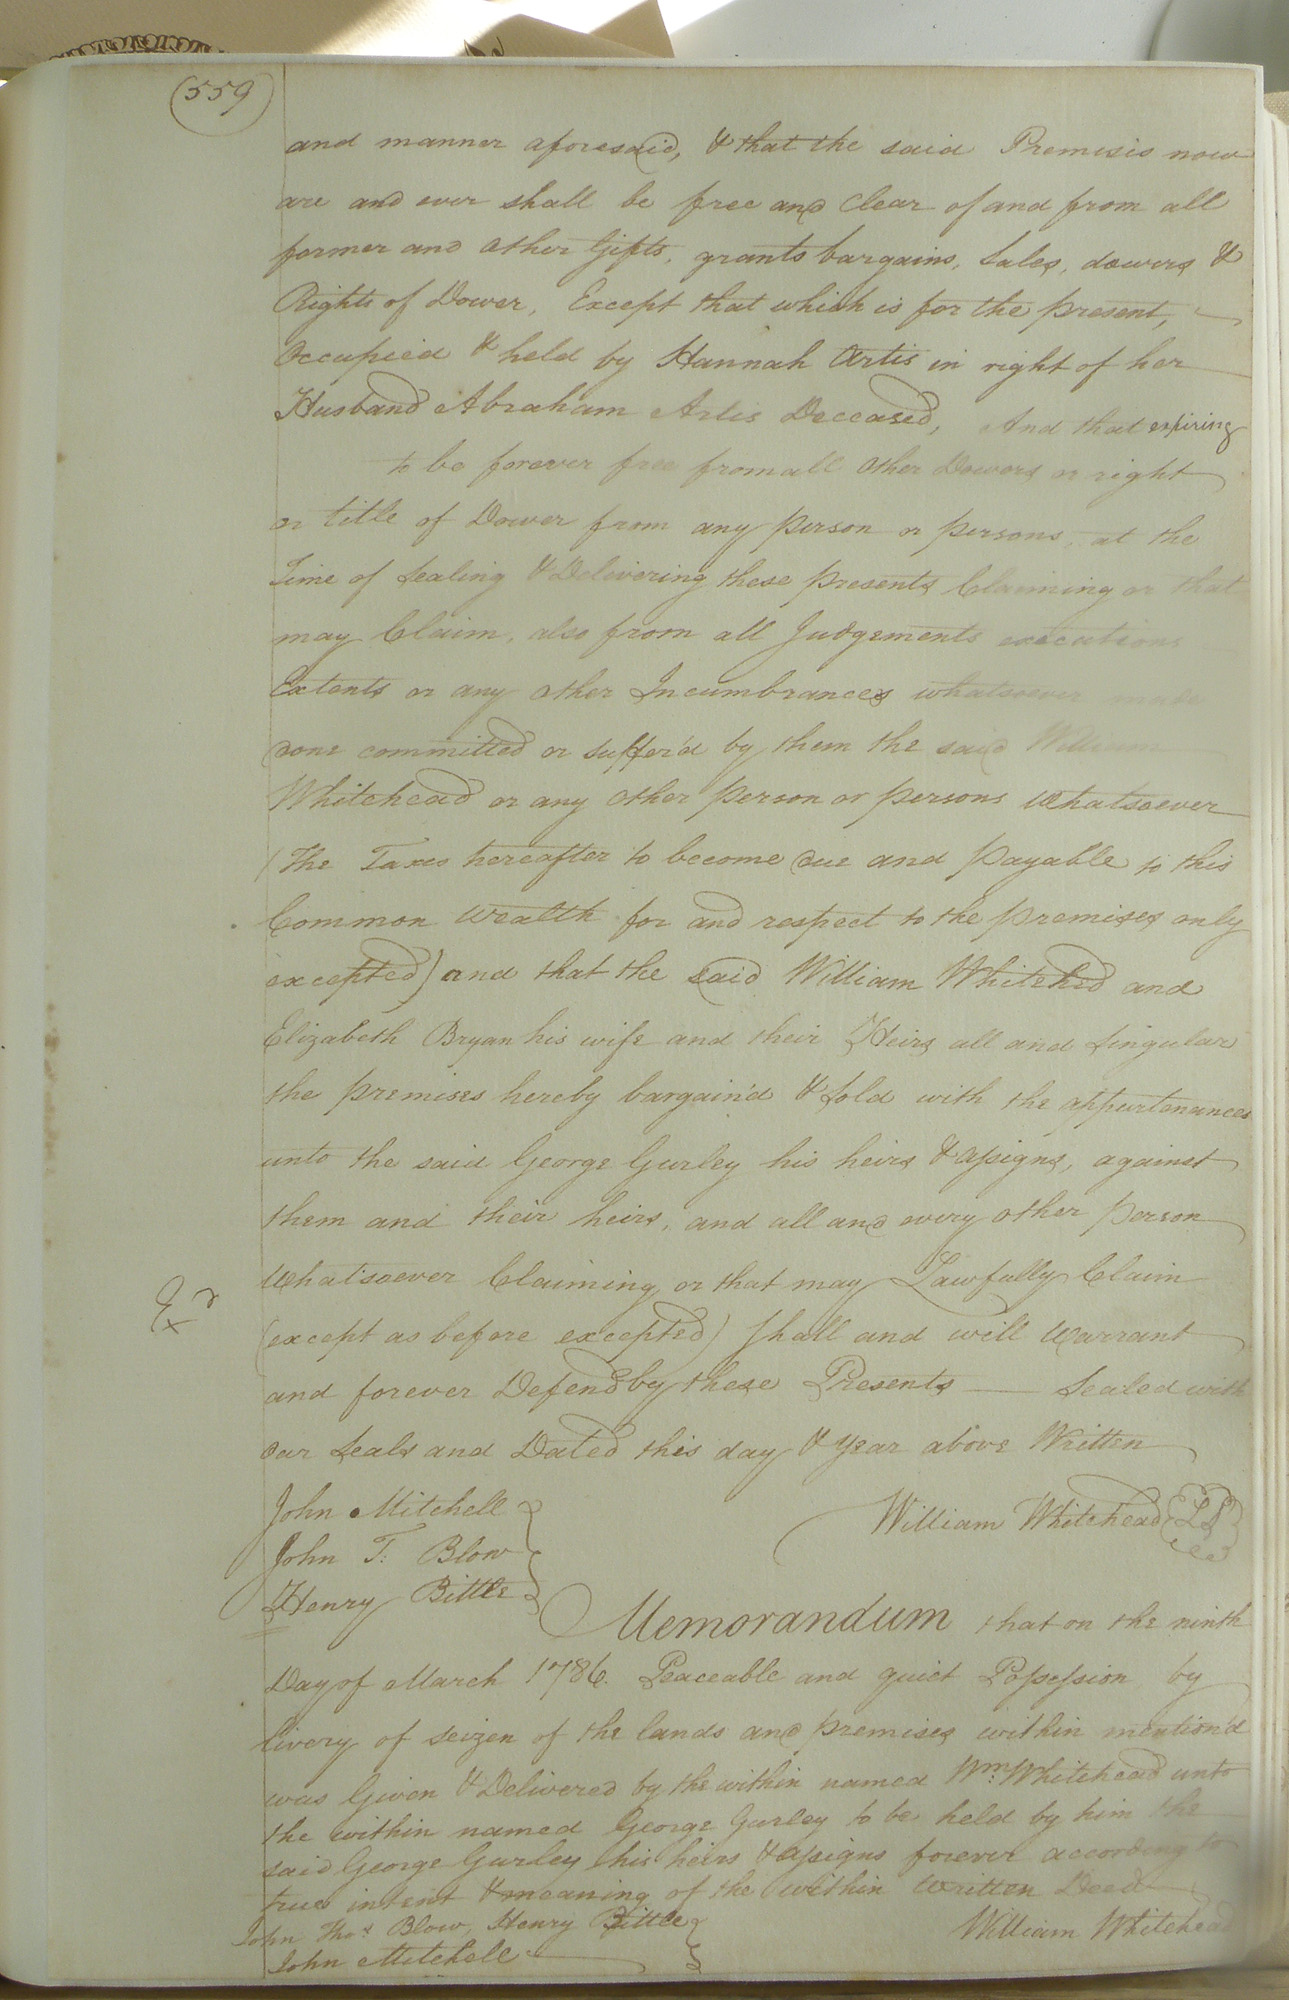 559
and manner aforesaid, & that the said Premisis now
are and ever shall be free and Clear of and from all
former and other Gifts, grants bargains, Sales, dowers &
Rights of Dower, Except that which is for the present,
Occupied & held by Hannah Artis in right of her
Husband Abraham Artis Deceased, And that expiring
to be forever free from all other Dowers or right
or title of Dower from any person or persons, at the
Time of Sealing & Delivering these presents Claiming or that
may Claim, also from all Judgements executions
Extents or any other Incumbrances whatsoever made
done committed or suffer'd by them the said William
Whitehead or any other person or persons whatsoever
(The Taxes hereafter to become due and payable to this
Common wealth for and respect to the premises only
excepted) and that the said William Whitehed and
Elizabeth Bryan his wife and their Heirs all and Singular
the premises hereby bargain'd & Sold with the appurtenances
unto the said George Gurley his heirs & assigns, against
them and their heirs, and all and every other person
Whatsoever Claiming or that may Lawfully Claim
(except as before excepted) shall and will Warrant
and forever Defend by these Presents — Sealed with
our Seals and Dated this day & year above Written
Exd
John Mitchell
William Whitehead LS
John T: Blow
Henry Bittle
Memorandum that on the ninth
Day of March 1786. Peaceable and quiet Possession by
livery of seizen of the lands and premises within mention'd
was Given & Delivered by the within named Wm: Whitehead unto
the within named George Gurley to be held by him the
said George Gurley his heirs & assigns forever according to
true intent & meaning of the within written Deed
John Thos Blow, Henry Bittle
William Whitehead
John Mitchell